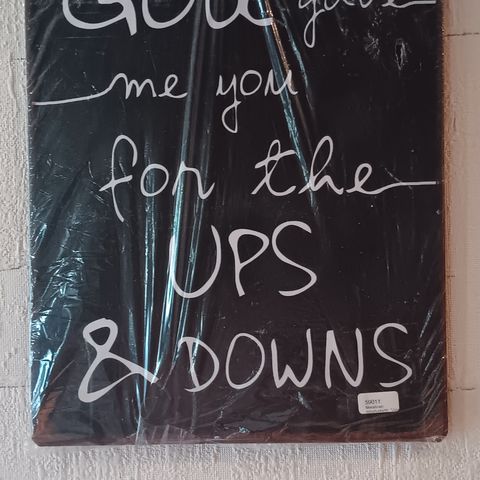 GOD gave
me you
for the
UPS
& DOWNS
59011